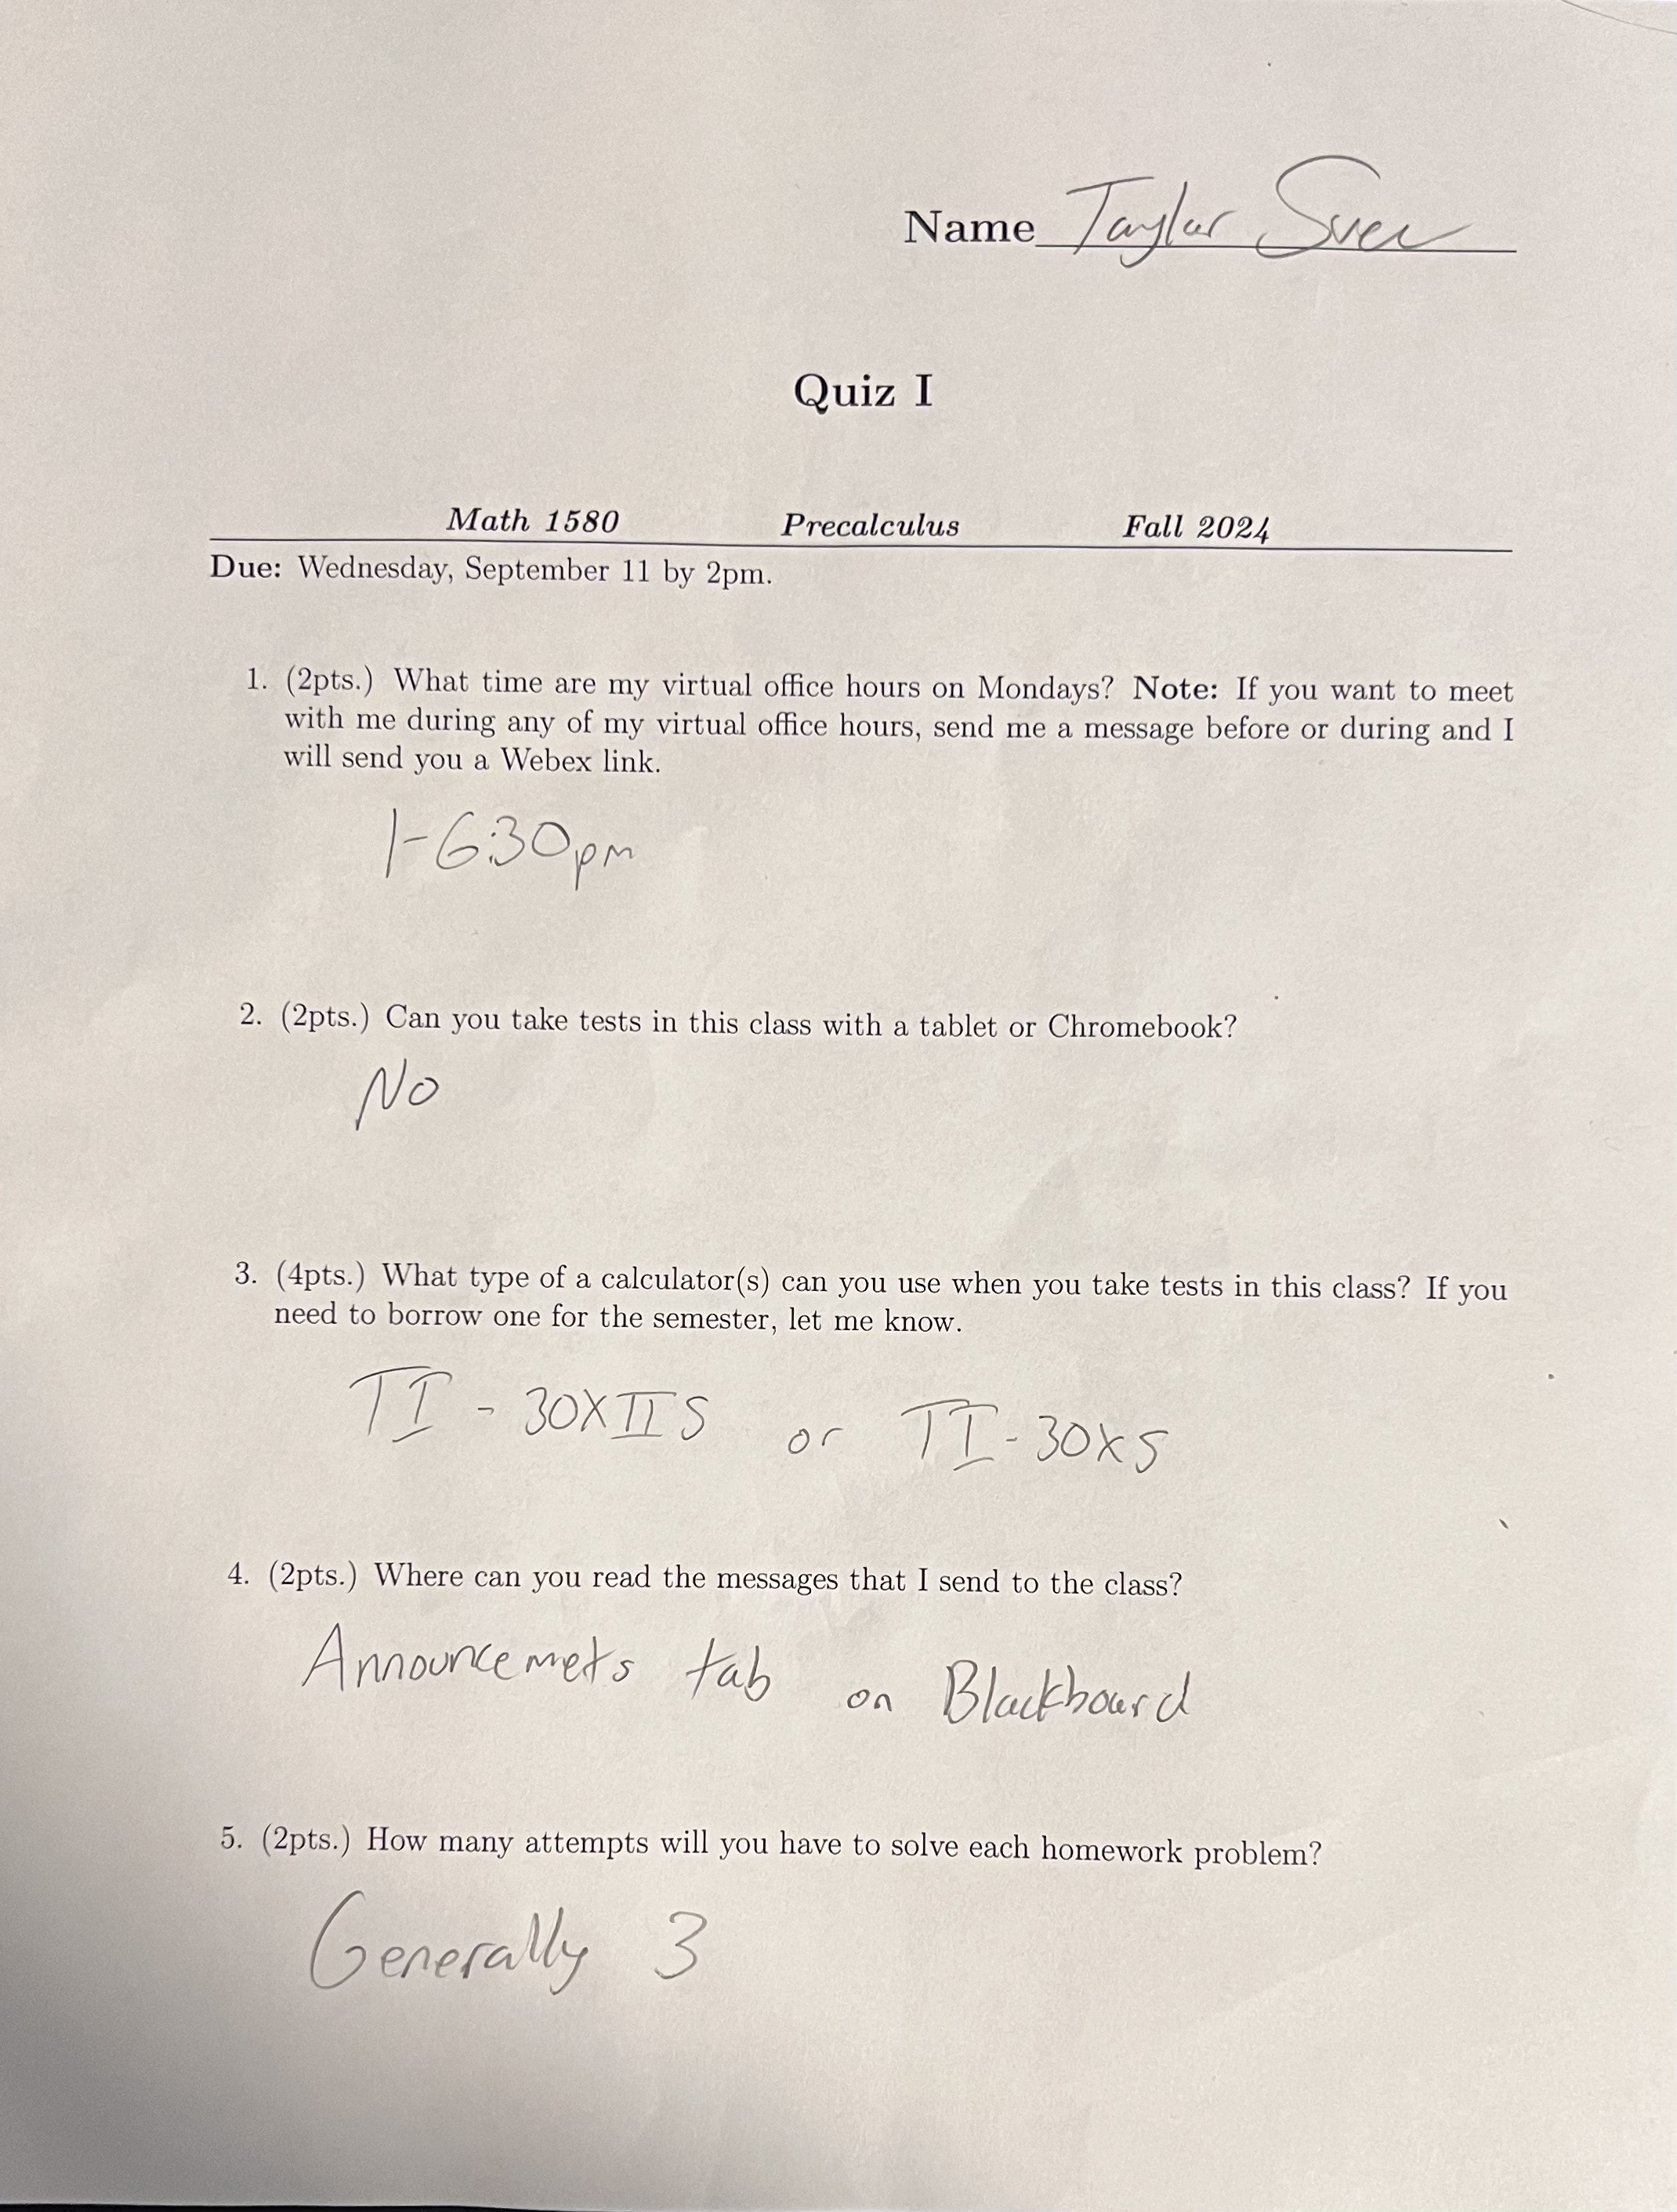 Name Taylor
Quiz I
Math 1580 Precalculus Fall 2024
Due: Wednesday, September 11 by 2pm.
1. (2pts.) What time are my virtual office hours on Mondays? Note: If you want to meet
with me during any of my virtual office hours, send me a message before or during and I
will send you a Webex link.
1-6:30pm
2. (2pts.) Can you take tests in this class with a tablet or Chromebook?
No
3. (4pts.) What type of a calculator(s) can you use when you take tests in this class? If you
need to borrow one for the semester, let me know.
TI - 30XIIS or TI-30XS
4. (2pts.) Where can you read the messages that I send to the class?
Announcemets tab on Blackboard
5. (2pts.) How many attempts will you have to solve each homework problem?
Generally 3